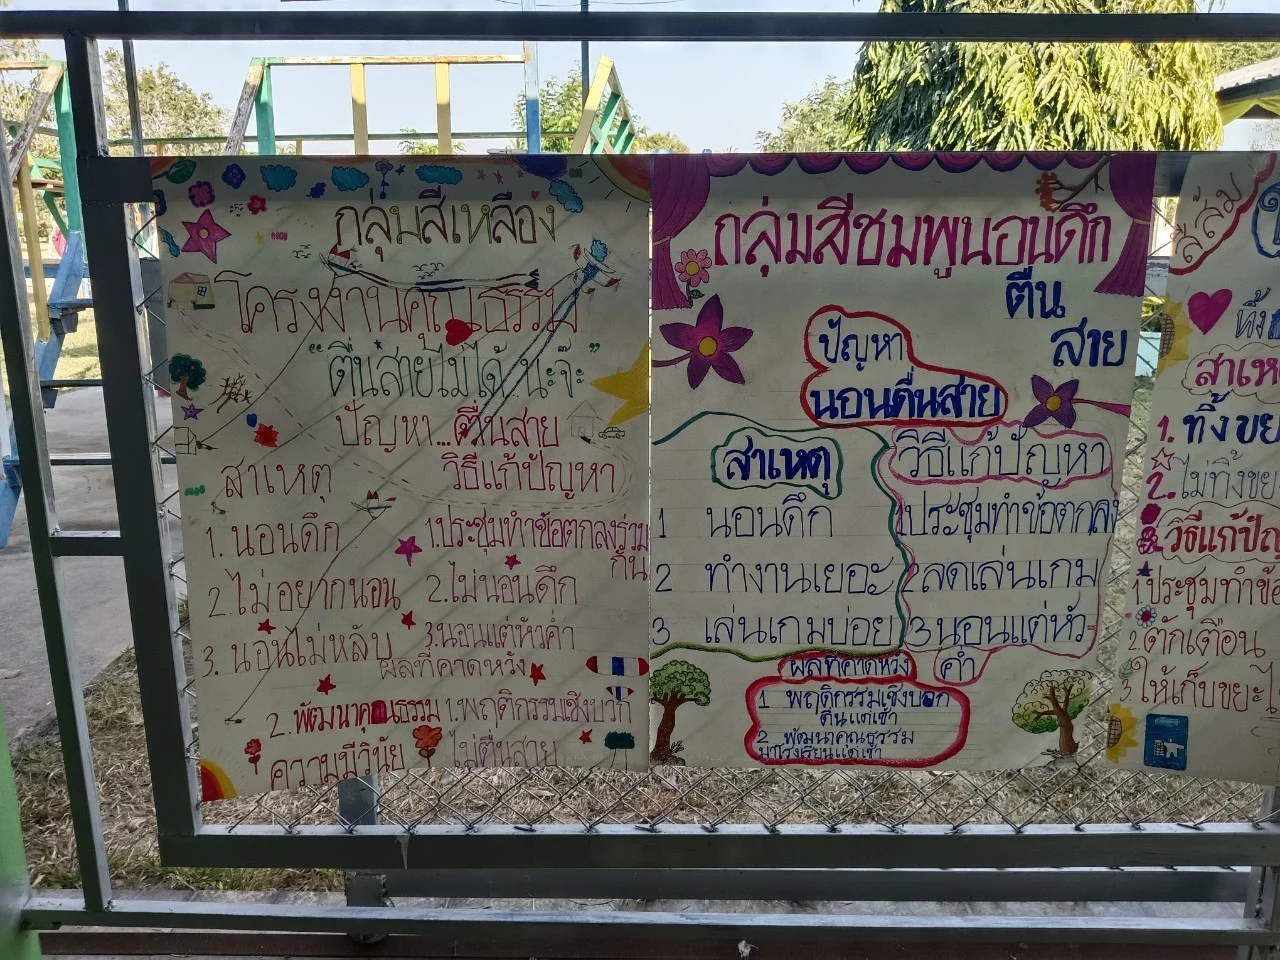 กลุ่มสีเหลือง
โครงงานคุณธรรม
"ตื่นสายไม่ได้ นะจ๊ะ"
ปัญหา...ตื่นสาย
สาเหตุ
1. นอนดึก
2. ไม่อยากนอน
3. นอนไม่หลับ
วิธีแก้ปัญหา
1.ประชุมทำข้อตกลงร่วม
กัน
2.ไม่นอนดึก
3.นอนแต่หัวค่ำ
ผลที่คาดหวัง
1.พฤติกรรมเชิงบวก
ไม่ตื่นสาย
2.พัฒนาคุณธรรม
ความมีวินัย
กลุ่มสีชมพูนอนดึก
ตื่น
สาย
ปัญหา
นอนตื่นสาย
สาเหตุ
1 นอนดึก
2 ทำงานเยอะ
3 เล่นเกมบ่อย
วิธีแก้ปัญหา
1ประชุมทำข้อตกลง
2ลดเล่นเกม
3นอนแต่หัว-
ค่ำ
ผลที่คาดหวัง
1 พฤติกรรมเชิงบอก
ตื่นแต่เช้า
2 พัฒนาคุณธรรม
มาโรงเรียนแต่เช้า
สีส้ม
ทิ้ง
สาเห
1. ทิ้งขย
2. ไม่ทิ้งขย
วิธีแก้ปัญ
1ประชุมทำข้อ
2.ตักเตือน
3 ให้เก็บขยะไ